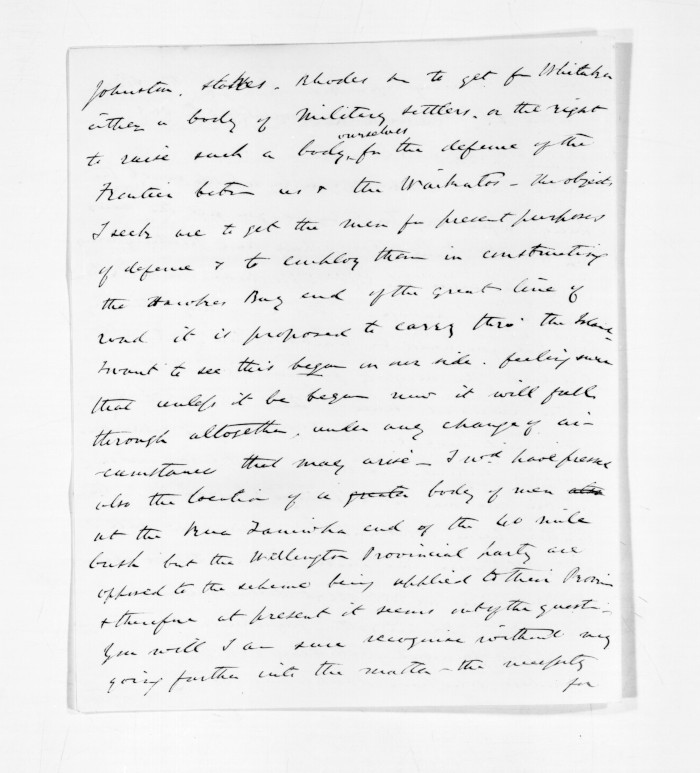 Johnston, Stokes, Rhodes &c to get fm Whitaker
either a body of Military settlers, or the right
to raise such a body ourselves for the defence of the
Frontier betwn us & the Waikatos – the objects
I seek are to get the men for present purposes
of defence & to employ them in constructing
the Hawkes Bay end of the great line of
road it is proposed to carry thro' the Island
I want to see this began on our side. feeling sure
that unless it be began now it will fall
through altogether, under any change of cir-
cumstances that may arise – I wd have pressed
also the location of a greater body of men also
at the Rua Taniwha end of the 40 mile
bush but the Wellington Provincial party are
opposed to the scheme being applied to their Provin
& therefore at present it seems out of the questn –
You will I am sure recognise without my
going further into the matter – the necessity
for